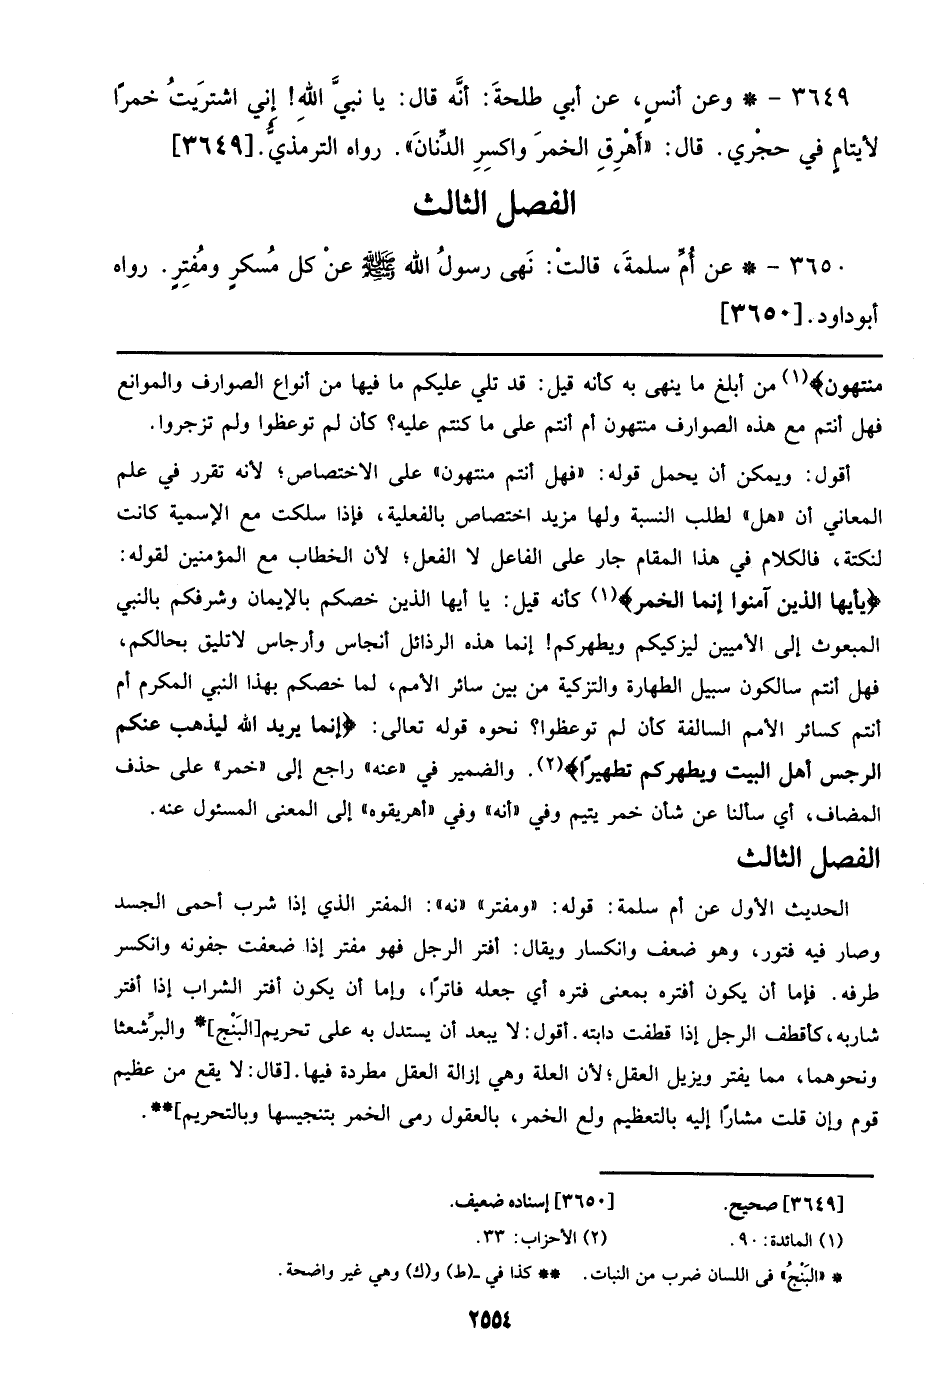 ٣٦٤٩ - * وعن أنسٍ، عن أبي طلحةَ: أنَّه قال: يا نبيَّ اللهِ! إِني اشتريَتُ خمرًا
لأيتامٍ في حجْري. قال: «أَهْرِقِ الخمرَ واكسِرِ الدِّنانَ». رواه الترمذيُّ.[٣٦٤٩]
الفصل الثالث
٣٦٥٠ - * عن أُمِّ سلمةَ، قالتْ: نَهى رسولُ الله ﷺ عنْ كل مُسكرٍ ومُفتِرٍ. رواه
أبوداود.[٣٦٥٠]
منتهون﴾(١) من أبلغ ما ينهى به كأنه قيل: قد تلي عليكم ما فيها من أنواع الصوارف والموانع
فهل أنتم مع هذه الصوارف منتهون أم أنتم على ما كنتم عليه؟ كأن لم توعظوا ولم تزجروا.
أقول: ويمكن أن يحمل قوله: «فهل أنتم منتهون» على الاختصاص؛ لأنه تقرر في علم
المعاني أن «هل» لطلب النسبة ولها مزيد اختصاص بالفعلية، فإذا سلكت مع الإسمية كانت
لنكتة، فالكلام في هذا المقام جار على الفاعل لا الفعل؛ لأن الخطاب مع المؤمنين لقوله:
﴿يأيها الذين آمنوا إنما الخمر﴾(١) كأنه قيل: يا أيها الذين خصكم بالإيمان وشرفكم بالنبي
المبعوث إلى الأميين ليزكيكم ويطهركم! إنما هذه الرذائل أنجاس وأرجاس لاتليق بحالكم،
فهل أنتم سالكون سبيل الطهارة والتزكية من بين سائر الأمم، لما خصكم بهذا النبي المكرم أم
أنتم كسائر الأمم السالفة كأن لم توعظوا؟ نحوه قوله تعالى: ﴿إنما يريد الله ليذهب عنكم
الرجس أهل البيت ويطهركم تطهيرًا﴾(٢). والضمير في «عنه» راجع إلى «خمر» على حذف
المضاف، أي سألنا عن شأن خمر يتيم وفي «أنه» وفي «أهريقوه» إلى المعنى المسئول عنه.
الفصل الثالث
الحديث الأول عن أم سلمة: قوله: «ومفتر» «نه»: المفتر الذي إذا شرب أحمى الجسد
وصار فيه فتور، وهو ضعف وانكسار ويقال: أفتر الرجل فهو مفتر إذا ضعفت جفونه وانكسر
طرفه. فإما أن يكون أفتره بمعنى فتره أي جعله فاترًا، وإما أن يكون أفتر الشراب إذا أفتر
شاربه،كأقطف الرجل إذا قطفت دابته.أقول:لا يبعد أن يستدل به على تحريم[البَنْج]* والبرِّشعثا
ونحوهما، مما يفتر ويزيل العقل؛لأن العلة وهي إزالة العقل مطردة فيها.[قال:لا يقع من عظيم
قوم وإن قلت مشارًا إليه بالتعظيم ولع الخمر، بالعقول رمى الخمر بتنجيسها وبالتحريم]**.
[٣٦٤٩] صحيح. [٣٦٥٠] إسناده ضعيف.
(١) المائدة: ٩٠. (٢) الأحزاب: ٣٣.
* «البَنْجُ» فى اللسان ضرب من النبات. ** كذا في ـ(ط) و(ك) وهي غير واضحة.
٢٥٥٤